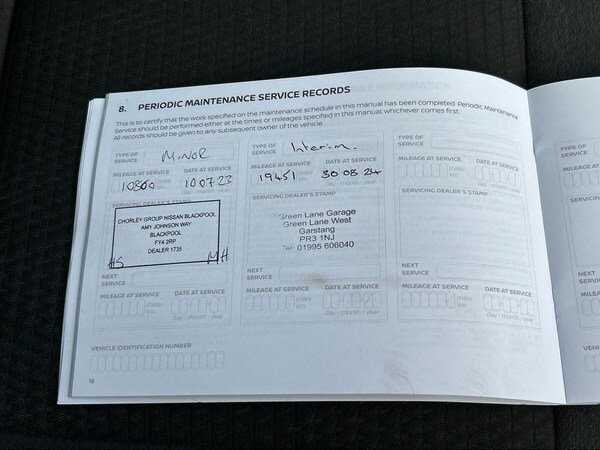 8. PERIODIC MAINTENANCE SERVICE RECORDS
This is to certify that the work specified on the maintenance schedule in this manual has been completed. Periodic Maintenance
Service should be performed either at the times or mileages specified in this manual, whichever comes first.
All records should be given to any subsequent owner of the vehicle
TYPE OF SERVICE MINOR
MILEAGE AT SERVICE DATE AT SERVICE
10860 miles km 10 07 23
day - month - year
SERVICING DEALER'S STAMP
CHORLEY GROUP NISSAN BLACKPOOL
AMY JOHNSON WAY
BLACKPOOL
FY4 2RP
DEALER 1735
HS MH
NEXT SERVICE
MILEAGE AT SERVICE DATE AT SERVICE
miles km
day - month - year
TYPE OF SERVICE Interim.
MILEAGE AT SERVICE DATE AT SERVICE
19451 miles km 30 08 24
day - month - year
SERVICING DEALER'S STAMP
Green Lane Garage
Green Lane West
Garstang
PR3 1NJ
Tel: 01995 606040
NEXT SERVICE
MILEAGE AT SERVICE DATE AT SERVICE
miles km
day - month - year
TYPE OF SERVICE
MILEAGE AT SERVICE DATE AT SERVICE
miles km
day - month - year
SERVICING DEALER'S STAMP
NEXT SERVICE
MILEAGE AT SERVICE DATE AT SERVICE
miles km
day - month - year
VEHICLE IDENTIFICATION NUMBER
16